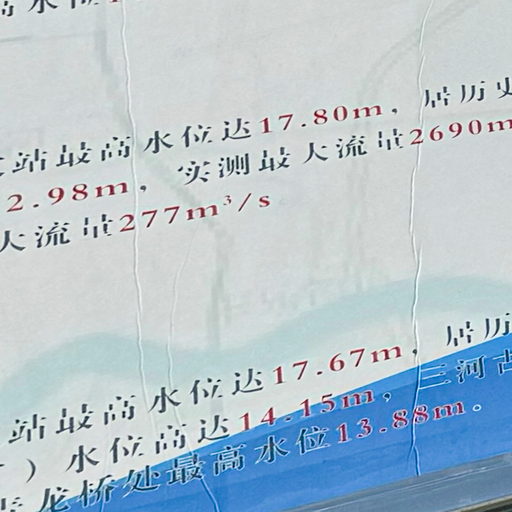 高水位
站最高水位达17.80m，居历史
2.98m，实测最大流量2690m
大流量277m³/s
站最高水位达17.67m，居历
）水位高达14.15m，三河古
龙桥处最高水位13.88m。